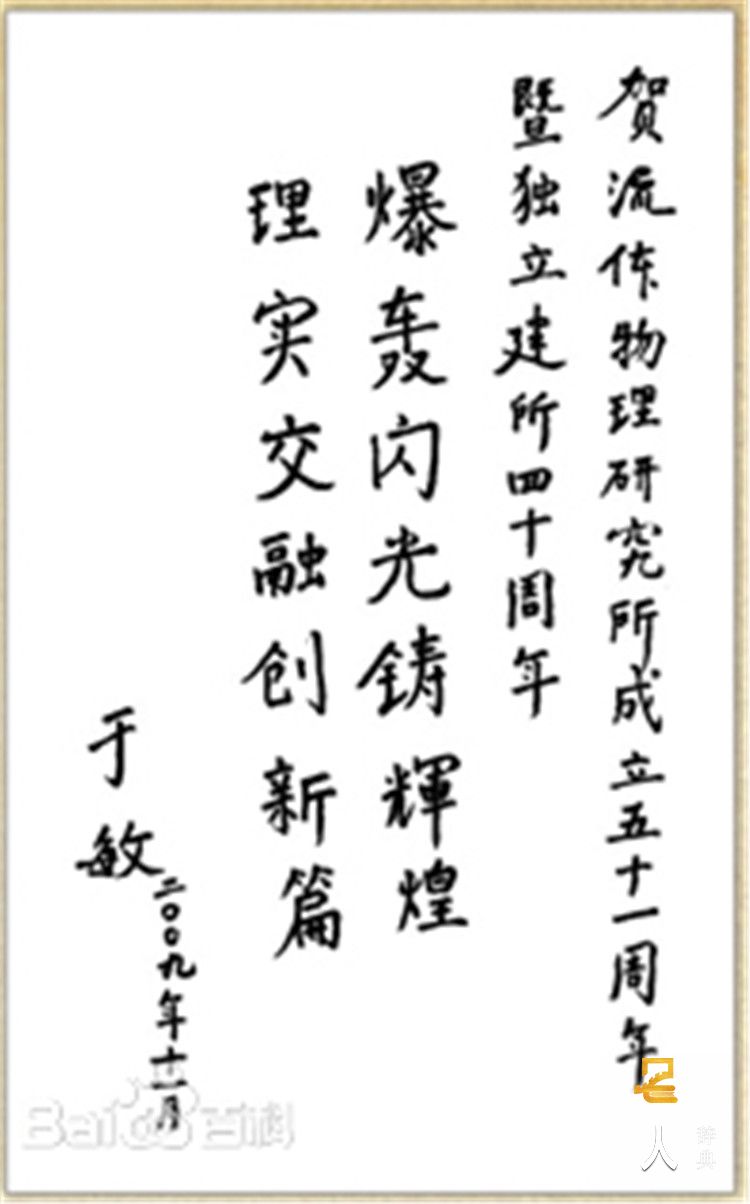 贺流体物理研究所成立五十一周年
暨独立建所四十周年
爆轰闪光铸輝煌
理实交融创新篇
于敏
二〇〇九年十一月
Bai百科
人
辞典